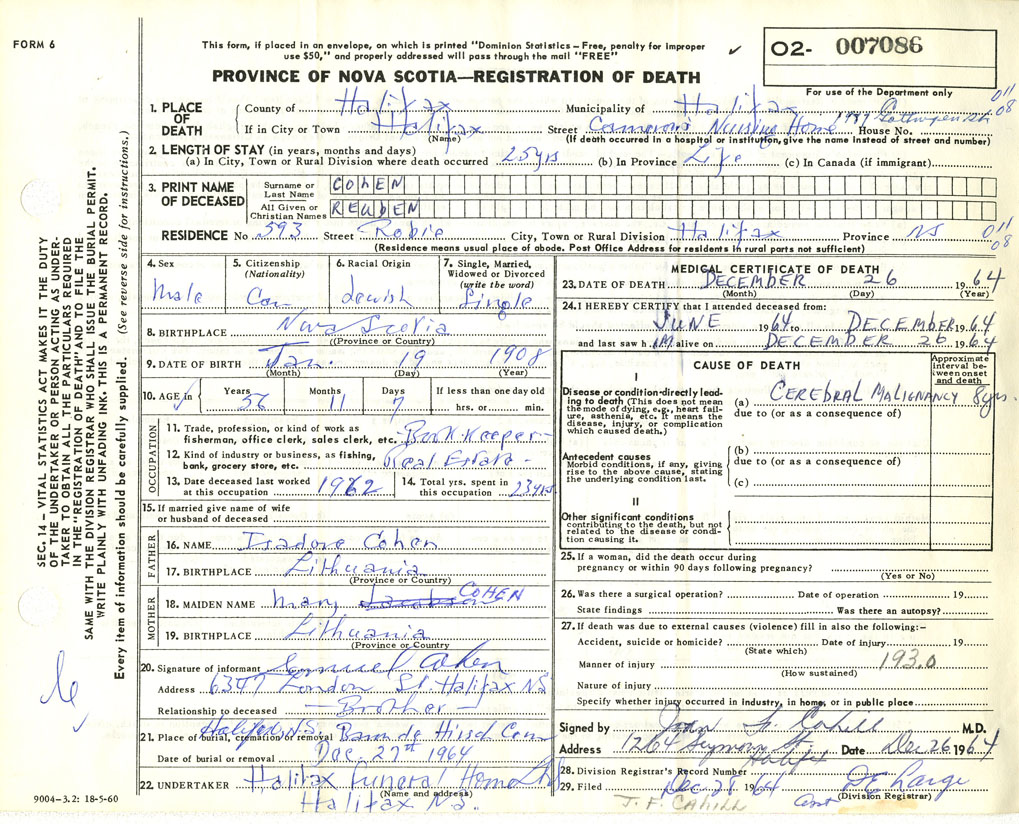 FORM 6
This form, if placed in an envelope, on which is printed "Dominion Statistics – Free, penalty for improper
use $50," and properly addressed will pass through the mail "FREE"
✓
O2- 007086
For use of the Department only
PROVINCE OF NOVA SCOTIA—REGISTRATION OF DEATH
011
08
1. PLACE OF DEATH
County of Halifax Municipality of Halifax
If in City or Town Halifax Street Cameron's Nursing Home House No.
(Name) (If death occurred in a hospital or institution, give the name instead of street and number)
2. LENGTH OF STAY (in years, months and days)
(a) In City, Town or Rural Division where death occurred 25 yrs (b) In Province Life (c) In Canada (if immigrant)
3. PRINT NAME OF DECEASED
Surname or Last Name COHEN
All Given or Christian Names REUBEN
RESIDENCE No 593 Street Robie City, Town or Rural Division Halifax Province NS
011
08
(Residence means usual place of abode. Post Office Address for residents in rural parts not sufficient)
4. Sex
Male
5. Citizenship
(Nationality)
Can
6. Racial Origin
Jewish
7. Single, Married,
Widowed or Divorced
(write the word)
Single
8. BIRTHPLACE Nova Scotia
(Province or Country)
9. DATE OF BIRTH Jan. 19 1908
(Month) (Day) (Year)
10. AGE in Years Months Days If less than one day old
56 11 7 hrs. or min.
OCCUPATION
11. Trade, profession, or kind of work as
fisherman, office clerk, sales clerk, etc. Book Keeper
12. Kind of industry or business, as fishing,
bank, grocery store, etc. Real Estate
13. Date deceased last worked
at this occupation 1962
14. Total yrs. spent in
this occupation 23 yrs
15. If married give name of wife
or husband of deceased
FATHER
16. NAME Isadore Cohen
17. BIRTHPLACE Lithuania
(Province or Country)
MOTHER
18. MAIDEN NAME Mary Jacobson COHEN
19. BIRTHPLACE Lithuania
(Province or Country)
20. Signature of informant Cohen
Address 6347 London St. Halifax NS
Relationship to deceased Brother
21. Place of burial, cremation or removal Halifax N.S. Baron de Hirsch Cem
Date of burial or removal Dec. 27th 1964
22. UNDERTAKER Halifax Funeral Home Ltd
(Name and address)
Halifax NS.
9004–3.2: 18-5-60
MEDICAL CERTIFICATE OF DEATH
23. DATE OF DEATH DECEMBER 26 1964
(Month) (Day) (Year)
24. I HEREBY CERTIFY that I attended deceased from:
JUNE 1964 to DECEMBER 1964
and last saw him alive on DECEMBER 26 1964
CAUSE OF DEATH
Approximate interval between onset and death
I
Disease or condition directly leading to death (This does not mean the mode of dying, e.g., heart failure, asthenia, etc. It means the disease, injury, or complication which caused death.)
(a) CEREBRAL MALIGNANCY 8 yrs.
due to (or as a consequence of)
Antecedent causes
Morbid conditions, if any, giving rise to the above cause, stating the underlying condition last.
(b)
due to (or as a consequence of)
(c)
II
Other significant conditions
contributing to the death, but not related to the disease or condition causing it.
25. If a woman, did the death occur during
pregnancy or within 90 days following pregnancy?
(Yes or No)
26. Was there a surgical operation? Date of operation 19
State findings Was there an autopsy?
27. If death was due to external causes (violence) fill in also the following:–
Accident, suicide or homicide? Date of injury 19
(State which)
Manner of injury 193.0
(How sustained)
Nature of injury
Specify whether injury occurred in industry, in home, or in public place
Signed by John F. Cahill M.D.
Address 1264 Seymour St. Halifax Date Dec 26 1964
28. Division Registrar's Record Number
29. Filed Dec 28 1964
(Division Registrar)
J. F. CAHILL
SEC. 14 – VITAL STATISTICS ACT MAKES IT THE DUTY
OF THE UNDERTAKER OR PERSON ACTING AS UNDER-
TAKER TO OBTAIN ALL THE PARTICULARS REQUIRED
IN THE "REGISTRATION OF DEATH" AND TO FILE THE
SAME WITH THE DIVISION REGISTRAR WHO SHALL ISSUE THE BURIAL PERMIT.
WRITE PLAINLY WITH UNFADING INK. THIS IS A PERMANENT RECORD.
Every item of information should be carefully supplied. (See reverse side for instructions.)